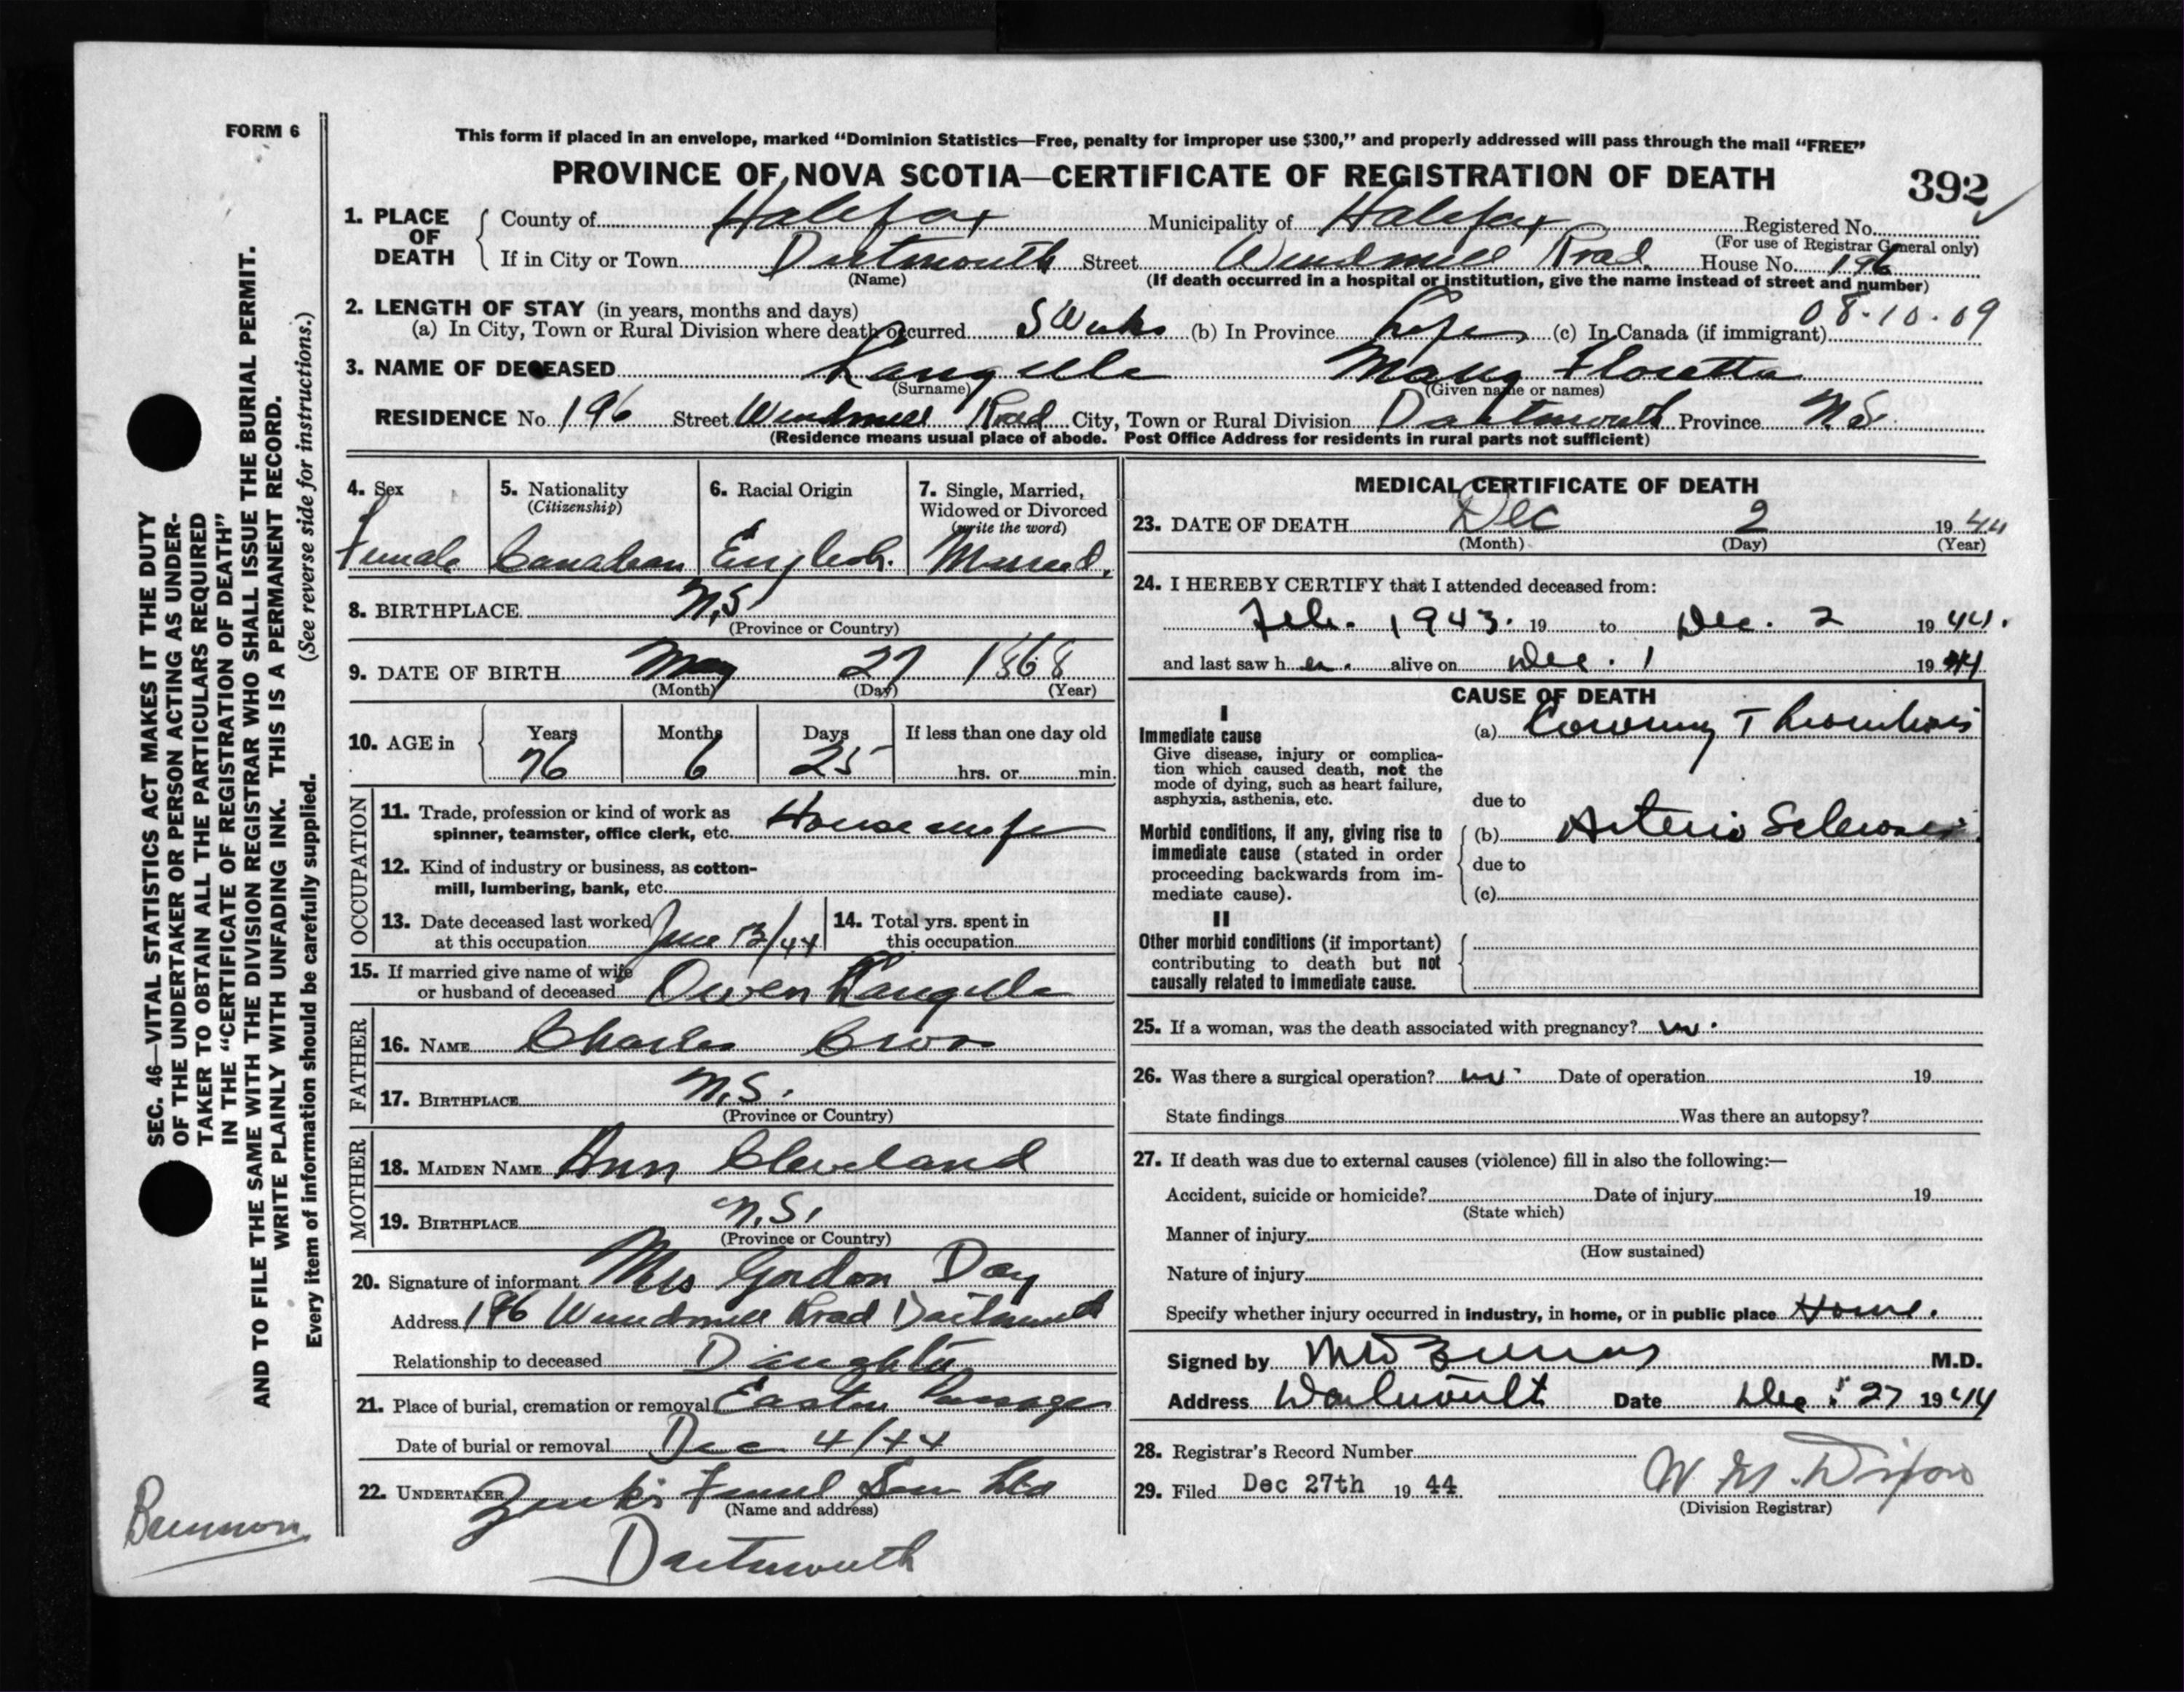 FORM 6
This form if placed in an envelope, marked “Dominion Statistics—Free, penalty for improper use $300,” and properly addressed will pass through the mail “FREE”
PROVINCE OF NOVA SCOTIA—CERTIFICATE OF REGISTRATION OF DEATH
392
1. PLACE OF DEATH
County of Halifax Municipality of Halifax Registered No.
(For use of Registrar General only)
If in City or Town Dartmouth Street Windmill Road House No. 196
(Name) (If death occurred in a hospital or institution, give the name instead of street and number)
2. LENGTH OF STAY (in years, months and days) 08.10.09
(a) In City, Town or Rural Division where death occurred 5 Weeks (b) In Province Life (c) In Canada (if immigrant)
3. NAME OF DECEASED Langille Mary Floretta
(Surname) (Given name or names)
RESIDENCE No. 196 Street Windmill Road City, Town or Rural Division Dartmouth Province N.S.
(Residence means usual place of abode. Post Office Address for residents in rural parts not sufficient)
4. Sex
Female
5. Nationality
(Citizenship)
Canadian
6. Racial Origin
English.
7. Single, Married,
Widowed or Divorced
(write the word)
Married.
8. BIRTHPLACE N.S.
(Province or Country)
9. DATE OF BIRTH May 27 1868
(Month) (Day) (Year)
10. AGE in Years Months Days If less than one day old
76 6 25 hrs. or min.
OCCUPATION
11. Trade, profession or kind of work as
spinner, teamster, office clerk, etc. Housewife
12. Kind of industry or business, as cotton-
mill, lumbering, bank, etc.
13. Date deceased last worked
at this occupation June 13/44
14. Total yrs. spent in
this occupation
15. If married give name of wife
or husband of deceased Owen Langille
FATHER
16. NAME Charles
17. BIRTHPLACE N.S.
(Province or Country)
MOTHER
18. MAIDEN NAME Ann Cleveland
19. BIRTHPLACE N.S.
(Province or Country)
20. Signature of informant Mrs Gordon Day
Address 196 Windmill Road Dartmouth
Relationship to deceased Daughter
21. Place of burial, cremation or removal Eastern Passage
Date of burial or removal Dec 4/44
22. UNDERTAKER Ltd
(Name and address)
Dartmouth
MEDICAL CERTIFICATE OF DEATH
23. DATE OF DEATH Dec 2 1944
(Month) (Day) (Year)
24. I HEREBY CERTIFY that I attended deceased from:
Feb. 1943. 19 to Dec. 2 1944.
and last saw h er. alive on Dec. 1 1944
CAUSE OF DEATH
I
Immediate cause
Give disease, injury or complica-
tion which caused death, not the
mode of dying, such as heart failure,
asphyxia, asthenia, etc.
(a) Coronary Thrombosis
due to
Morbid conditions, if any, giving rise to
immediate cause (stated in order
proceeding backwards from im-
mediate cause).
(b) Arterio Sclerosis
due to
(c)
II
Other morbid conditions (if important)
contributing to death but not
causally related to immediate cause.
25. If a woman, was the death associated with pregnancy? no.
26. Was there a surgical operation? no. Date of operation 19
State findings Was there an autopsy?
27. If death was due to external causes (violence) fill in also the following:—
Accident, suicide or homicide? Date of injury 19
(State which)
Manner of injury
(How sustained)
Nature of injury
Specify whether injury occurred in industry, in home, or in public place Home.
Signed by M.D.
Address Dartmouth Date Dec. 27 1944
28. Registrar's Record Number
29. Filed Dec 27th 19 44
(Division Registrar)
SEC. 46—VITAL STATISTICS ACT MAKES IT THE DUTY
OF THE UNDERTAKER OR PERSON ACTING AS UNDER-
TAKER TO OBTAIN ALL THE PARTICULARS REQUIRED
IN THE “CERTIFICATE OF REGISTRATION OF DEATH”
AND TO FILE THE SAME WITH THE DIVISION REGISTRAR WHO SHALL ISSUE THE BURIAL PERMIT.
WRITE PLAINLY WITH UNFADING INK. THIS IS A PERMANENT RECORD.
Every item of information should be carefully supplied. (See reverse side for instructions.)